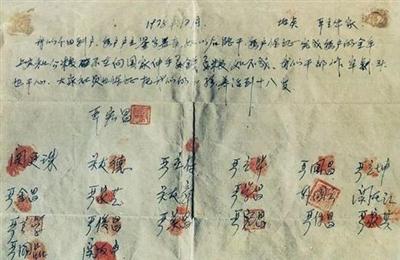 1978年12月 地点 严立华家
我们分田到户，每户户主签字盖章，如以后能干，每户保证完成每户的全年
上交和公粮，不在向国家伸手要钱要粮，如不成，我们干部作牢刹头
也干心，大家社员也保证把我们的小孩养活到十八岁
严宏昌
关廷珠 关友德 严立付 严立华 严国昌 严立坤
严金昌 严家芝 关友章 严学昌 韩国云 关友江
严立学 严俊昌 严美昌 严宏昌 严付昌 严家其
严国品 关友申